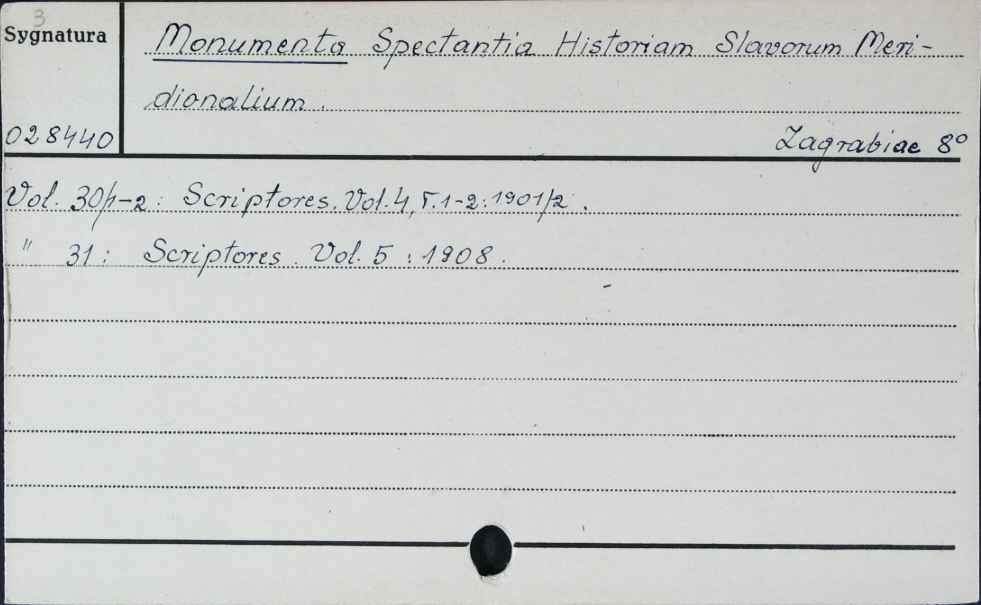 3
Sygnatura
Monumenta Spectantia Historiam Slavorum Meri-
dionalium.
028440
Zagrabiae 8°
Vol. 30/1-2: Scriptores. Vol. 4, T. 1-2: 1901/2.
" 31: Scriptores. Vol. 5: 1908.